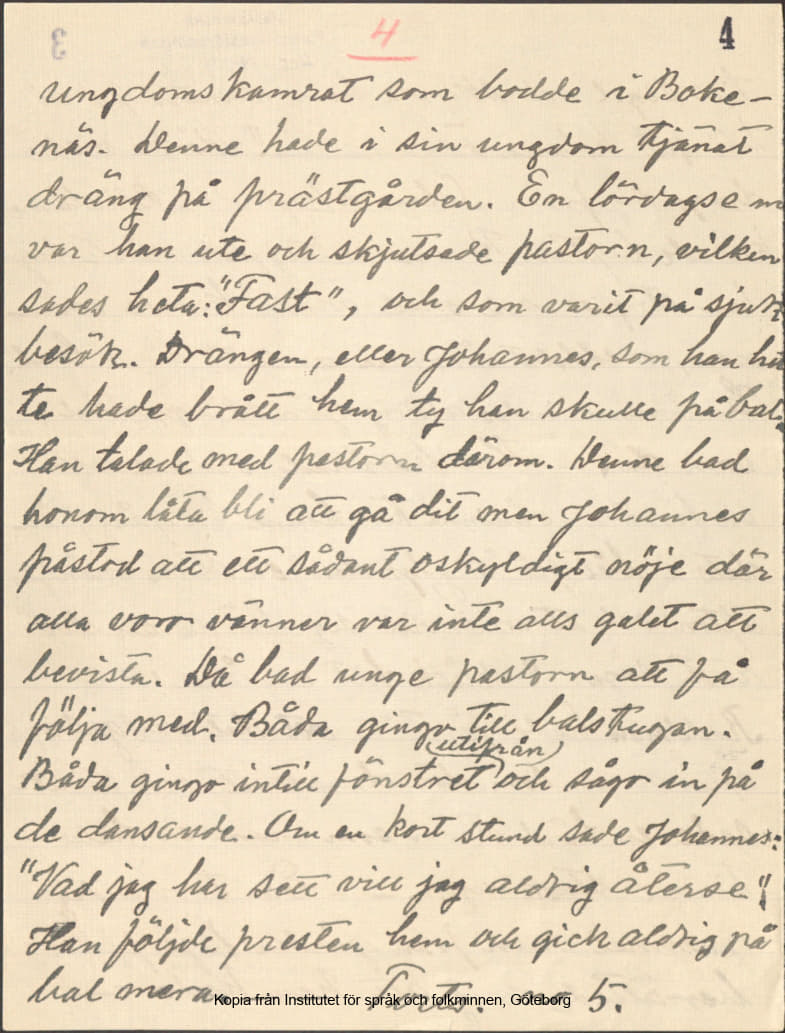 4 4
ungdomskamrat som bodde i Boke-
näs. Denne hade i sin ungdom tjänat
dräng på prästgården. En lördagse m
var han ute och skjutsade pastorn, vilken
sades heta: "Fast", och som varit på sjuk-
besök. Drängen, eller Johannes, som han het
te hade brått hem ty han skulle på bal.
Han talade med pastorn därom. Denne bad
honom låta bli att gå dit men Johannes
påstod att ett sådant oskyldigt nöje där
alla voro vänner var inte alls galet att
bevista. Då bad unge pastorn att få
följa med. Båda gingo till balstugan.
(utifrån)
Båda gingo intill fönstret och sågo in på
de dansande. Om en kort stund sade Johannes:
"Vad jag har sett vill jag aldrig återse"!
Han följde presten hem och gick aldrig på
bal mera. Forts. no 5.
Kopia från Institutet för språk och folkminnen, Göteborg